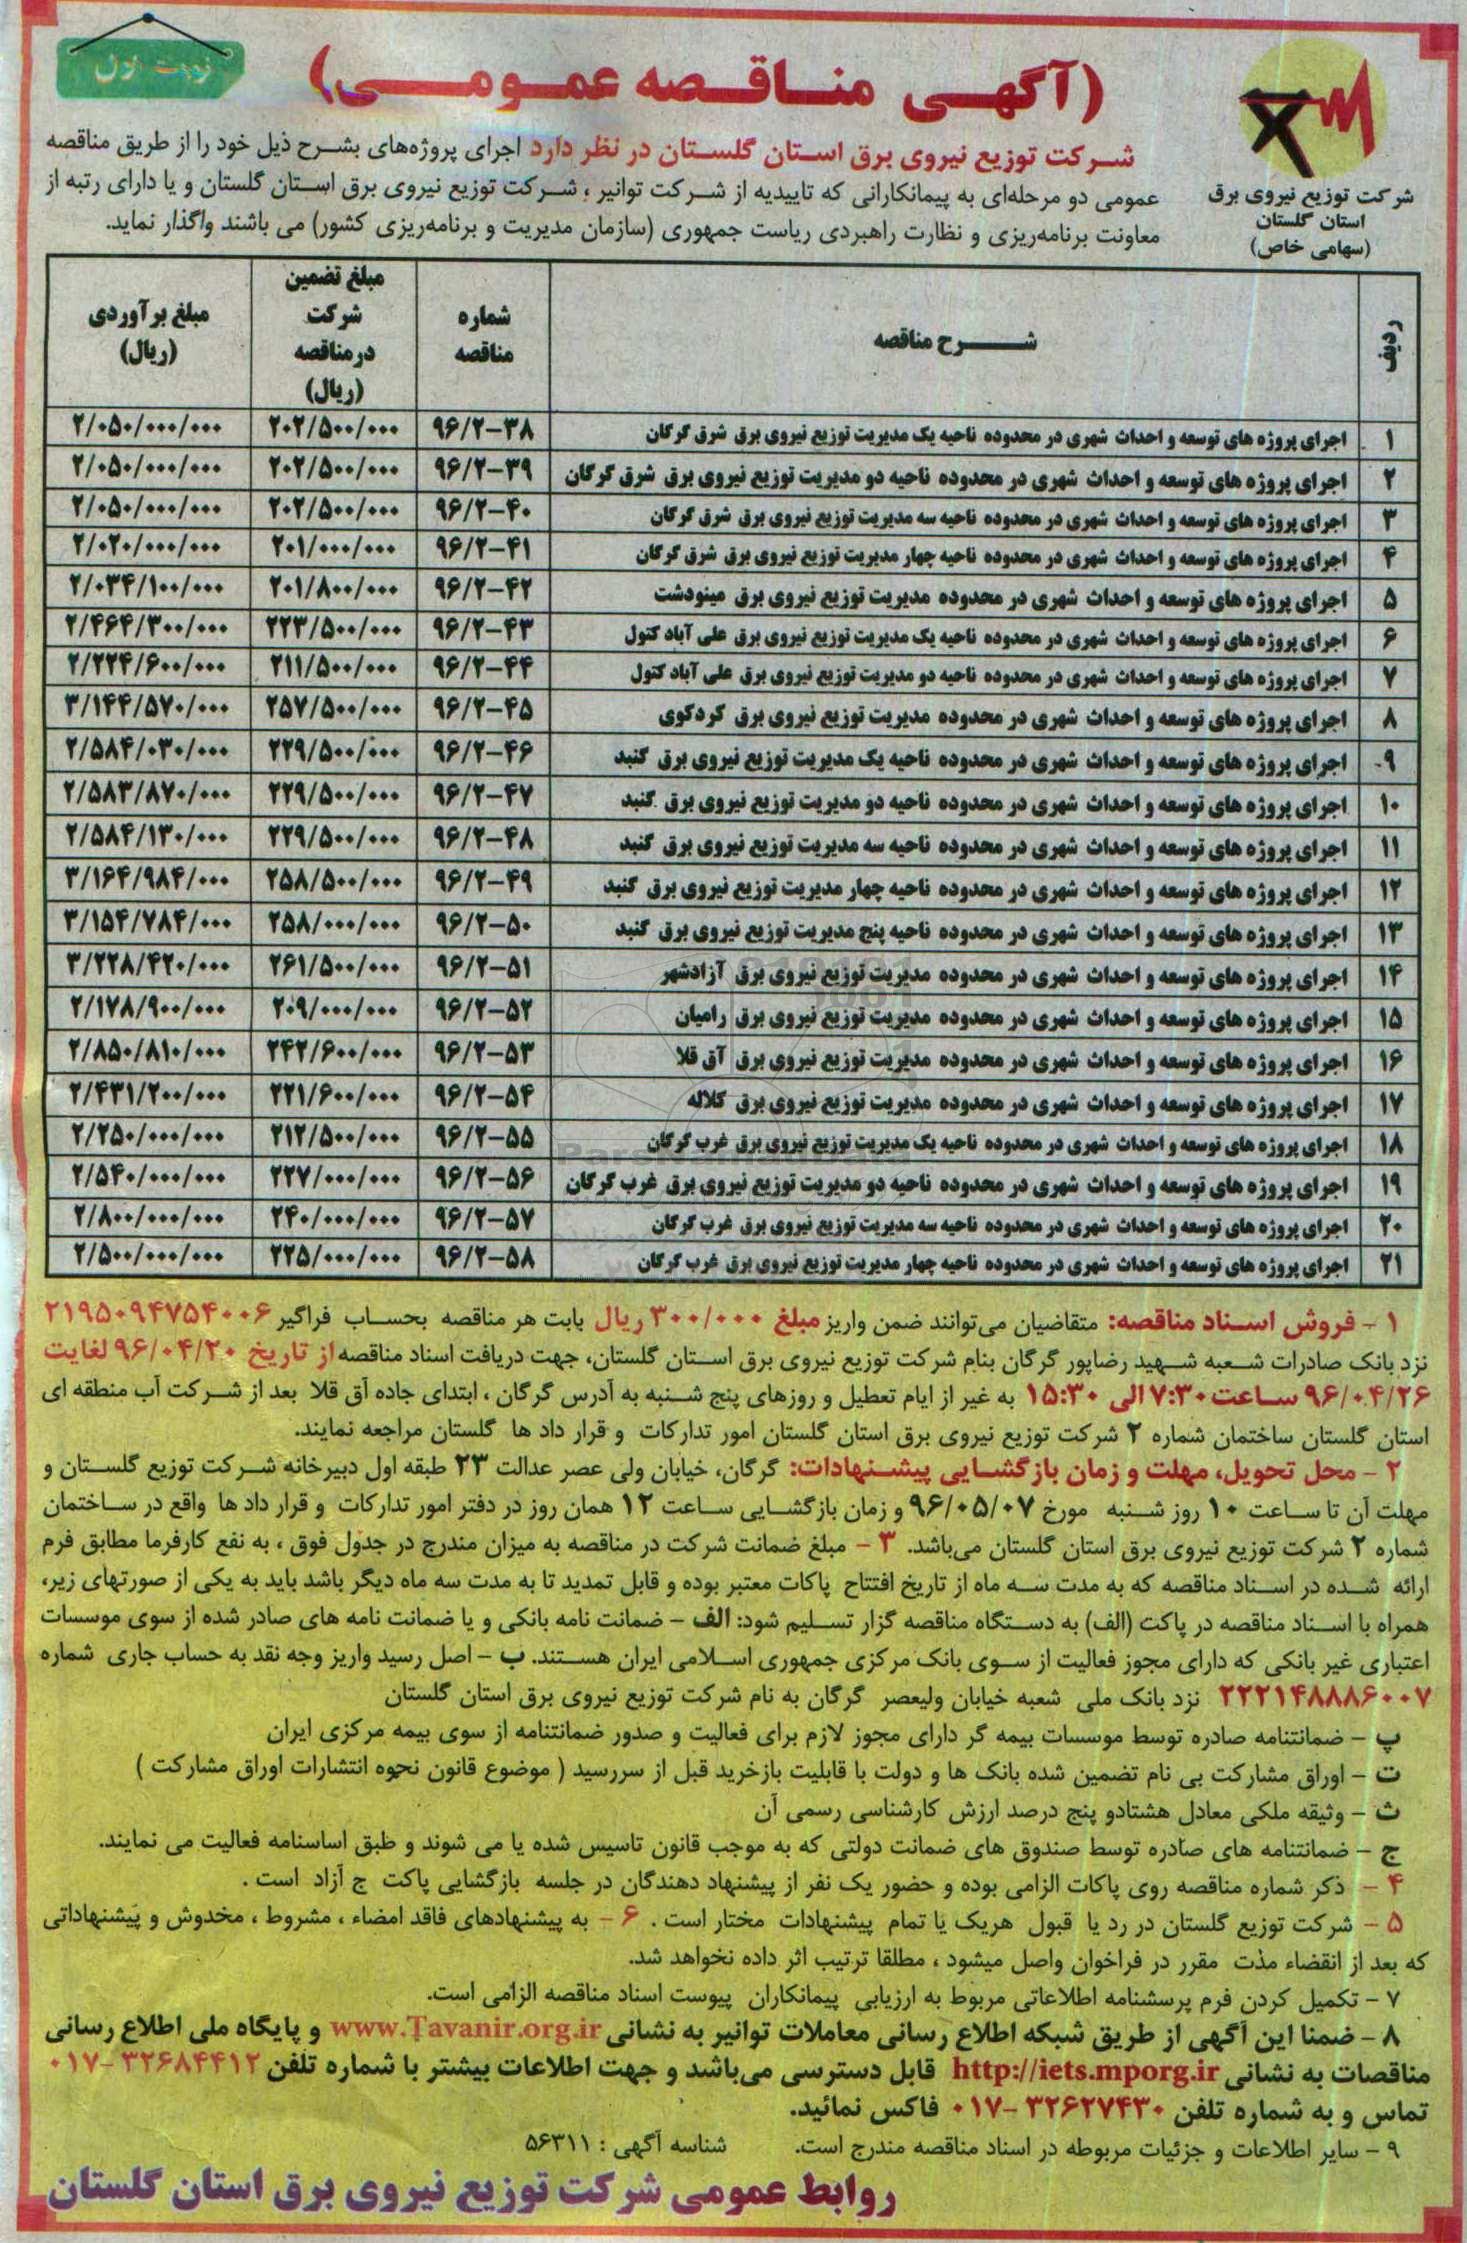 نوبت اول
(آگهی مناقصه عمومی)
شرکت توزیع نیروی برق
استان گلستان
(سهامی خاص)
شرکت توزیع نیروی برق استان گلستان در نظر دارد اجرای پروژه‌های بشرح ذیل خود را از طریق مناقصه
عمومی دو مرحله‌ای به پیمانکارانی که تاییدیه از شرکت توانیر ، شرکت توزیع نیروی برق استان گلستان و یا دارای رتبه از
معاونت برنامه‌ریزی و نظارت راهبردی ریاست جمهوری (سازمان مدیریت و برنامه‌ریزی کشور) می باشند واگذار نماید.
ردیف شرح مناقصه شماره مناقصه مبلغ تضمین شرکت درمناقصه (ریال) مبلغ برآوردی (ریال)
۱ اجرای پروژه های توسعه و احداث شهری در محدوده ناحیه یک مدیریت توزیع نیروی برق شرق گرگان ۹۶/۲-۳۸ ۲۰۲/۵۰۰/۰۰۰ ۲/۰۵۰/۰۰۰/۰۰۰
۲ اجرای پروژه های توسعه و احداث شهری در محدوده ناحیه دو مدیریت توزیع نیروی برق شرق گرگان ۹۶/۲-۳۹ ۲۰۲/۵۰۰/۰۰۰ ۲/۰۵۰/۰۰۰/۰۰۰
۳ اجرای پروژه های توسعه و احداث شهری در محدوده ناحیه سه مدیریت توزیع نیروی برق شرق گرگان ۹۶/۲-۴۰ ۲۰۲/۵۰۰/۰۰۰ ۲/۰۵۰/۰۰۰/۰۰۰
۴ اجرای پروژه های توسعه و احداث شهری در محدوده ناحیه چهار مدیریت توزیع نیروی برق شرق گرگان ۹۶/۲-۴۱ ۲۰۱/۰۰۰/۰۰۰ ۲/۰۲۰/۰۰۰/۰۰۰
۵ اجرای پروژه های توسعه و احداث شهری در محدوده مدیریت توزیع نیروی برق مینودشت ۹۶/۲-۴۲ ۲۰۱/۸۰۰/۰۰۰ ۲/۰۳۴/۱۰۰/۰۰۰
۶ اجرای پروژه های توسعه و احداث شهری در محدوده ناحیه یک مدیریت توزیع نیروی برق علی آباد کتول ۹۶/۲-۴۳ ۲۲۳/۵۰۰/۰۰۰ ۲/۴۶۴/۳۰۰/۰۰۰
۷ اجرای پروژه های توسعه و احداث شهری در محدوده ناحیه دو مدیریت توزیع نیروی برق علی آباد کتول ۹۶/۲-۴۴ ۲۱۱/۵۰۰/۰۰۰ ۲/۲۲۴/۶۰۰/۰۰۰
۸ اجرای پروژه های توسعه و احداث شهری در محدوده مدیریت توزیع نیروی برق کردکوی ۹۶/۲-۴۵ ۲۵۷/۵۰۰/۰۰۰ ۳/۱۴۴/۵۷۰/۰۰۰
۹ اجرای پروژه های توسعه و احداث شهری در محدوده ناحیه یک مدیریت توزیع نیروی برق گنبد ۹۶/۲-۴۶ ۲۲۹/۵۰۰/۰۰۰ ۲/۵۸۴/۰۳۰/۰۰۰
۱۰ اجرای پروژه های توسعه و احداث شهری در محدوده ناحیه دو مدیریت توزیع نیروی برق گنبد ۹۶/۲-۴۷ ۲۲۹/۵۰۰/۰۰۰ ۲/۵۸۳/۸۷۰/۰۰۰
۱۱ اجرای پروژه های توسعه و احداث شهری در محدوده ناحیه سه مدیریت توزیع نیروی برق گنبد ۹۶/۲-۴۸ ۲۲۹/۵۰۰/۰۰۰ ۲/۵۸۴/۱۳۰/۰۰۰
۱۲ اجرای پروژه های توسعه و احداث شهری در محدوده ناحیه چهار مدیریت توزیع نیروی برق گنبد ۹۶/۲-۴۹ ۲۵۸/۵۰۰/۰۰۰ ۳/۱۶۴/۹۸۴/۰۰۰
۱۳ اجرای پروژه های توسعه و احداث شهری در محدوده ناحیه پنج مدیریت توزیع نیروی برق گنبد ۹۶/۲-۵۰ ۲۵۸/۰۰۰/۰۰۰ ۳/۱۵۴/۷۸۴/۰۰۰
۱۴ اجرای پروژه های توسعه و احداث شهری در محدوده مدیریت توزیع نیروی برق آزادشهر ۹۶/۲-۵۱ ۲۶۱/۵۰۰/۰۰۰ ۳/۲۲۸/۴۲۰/۰۰۰
۱۵ اجرای پروژه های توسعه و احداث شهری در محدوده مدیریت توزیع نیروی برق رامیان ۹۶/۲-۵۲ ۲۰۹/۰۰۰/۰۰۰ ۲/۱۷۸/۹۰۰/۰۰۰
۱۶ اجرای پروژه های توسعه و احداث شهری در محدوده مدیریت توزیع نیروی برق آق قلا ۹۶/۲-۵۳ ۲۴۲/۶۰۰/۰۰۰ ۲/۸۵۰/۸۱۰/۰۰۰
۱۷ اجرای پروژه های توسعه و احداث شهری در محدوده مدیریت توزیع نیروی برق کلاله ۹۶/۲-۵۴ ۲۲۱/۶۰۰/۰۰۰ ۲/۴۳۱/۲۰۰/۰۰۰
۱۸ اجرای پروژه های توسعه و احداث شهری در محدوده ناحیه یک مدیریت توزیع نیروی برق غرب گرگان ۹۶/۲-۵۵ ۲۱۲/۵۰۰/۰۰۰ ۲/۲۵۰/۰۰۰/۰۰۰
۱۹ اجرای پروژه های توسعه و احداث شهری در محدوده ناحیه دو مدیریت توزیع نیروی برق غرب گرگان ۹۶/۲-۵۶ ۲۲۷/۰۰۰/۰۰۰ ۲/۵۴۰/۰۰۰/۰۰۰
۲۰ اجرای پروژه های توسعه و احداث شهری در محدوده ناحیه سه مدیریت توزیع نیروی برق غرب گرگان ۹۶/۲-۵۷ ۲۴۰/۰۰۰/۰۰۰ ۲/۸۰۰/۰۰۰/۰۰۰
۲۱ اجرای پروژه های توسعه و احداث شهری در محدوده ناحیه چهار مدیریت توزیع نیروی برق غرب گرگان ۹۶/۲-۵۸ ۲۲۵/۰۰۰/۰۰۰ ۲/۵۰۰/۰۰۰/۰۰۰
۱ - فروش اسناد مناقصه: متقاضیان می‌توانند ضمن واریز مبلغ ۳۰۰/۰۰۰ ریال بابت هر مناقصه بحساب فراگیر ۲۱۹۵۰۹۴۷۵۴۰۰۶
نزد بانک صادرات شعبه شهید رضاپور گرگان بنام شرکت توزیع نیروی برق استان گلستان، جهت دریافت اسناد مناقصه از تاریخ ۹۶/۰۴/۲۰ لغایت
۹۶/۰۴/۲۶ ساعت ۷:۳۰ الی ۱۵:۳۰ به غیر از ایام تعطیل و روزهای پنج شنبه به آدرس گرگان ، ابتدای جاده آق قلا بعد از شرکت آب منطقه ای
استان گلستان ساختمان شماره ۲ شرکت توزیع نیروی برق استان گلستان امور تدارکات و قرار داد ها گلستان مراجعه نمایند.
۲ - محل تحویل، مهلت و زمان بازگشایی پیشنهادات: گرگان، خیابان ولی عصر عدالت ۲۳ طبقه اول دبیرخانه شرکت توزیع گلستان و
مهلت آن تا ساعت ۱۰ روز شنبه مورخ ۹۶/۰۵/۰۷ و زمان بازگشایی ساعت ۱۲ همان روز در دفتر امور تدارکات و قرار داد ها واقع در ساختمان
شماره ۲ شرکت توزیع نیروی برق استان گلستان می‌باشد. ۳ - مبلغ ضمانت شرکت در مناقصه به میزان مندرج در جدول فوق ، به نفع کارفرما مطابق فرم
ارائه شده در اسناد مناقصه که به مدت سه ماه از تاریخ افتتاح پاکات معتبر بوده و قابل تمدید تا به مدت سه ماه دیگر باشد باید به یکی از صورتهای زیر،
همراه با اسناد مناقصه در پاکت (الف) به دستگاه مناقصه گزار تسلیم شود: الف - ضمانت نامه بانکی و یا ضمانت نامه های صادر شده از سوی موسسات
اعتباری غیر بانکی که دارای مجوز فعالیت از سوی بانک مرکزی جمهوری اسلامی ایران هستند. ب - اصل رسید واریز وجه نقد به حساب جاری شماره
۲۲۲۱۴۸۸۸۶۰۰۷ نزد بانک ملی شعبه خیابان ولیعصر گرگان به نام شرکت توزیع نیروی برق استان گلستان
پ - ضمانتنامه صادره توسط موسسات بیمه گر دارای مجوز لازم برای فعالیت و صدور ضمانتنامه از سوی بیمه مرکزی ایران
ت - اوراق مشارکت بی نام تضمین شده بانک ها و دولت با قابلیت بازخرید قبل از سررسید ( موضوع قانون نحوه انتشارات اوراق مشارکت )
ث - وثیقه ملکی معادل هشتادو پنج درصد ارزش کارشناسی رسمی آن
ج - ضمانتنامه های صادره توسط صندوق های ضمانت دولتی که به موجب قانون تاسیس شده یا می شوند و طبق اساسنامه فعالیت می نمایند.
۴ - ذکر شماره مناقصه روی پاکات الزامی بوده و حضور یک نفر از پیشنهاد دهندگان در جلسه بازگشایی پاکت ج آزاد است .
۵ - شرکت توزیع گلستان در رد یا قبول هریک یا تمام پیشنهادات مختار است . ۶ - به پیشنهادهای فاقد امضاء ، مشروط ، مخدوش و پیشنهاداتی
که بعد از انقضاء مدت مقرر در فراخوان واصل میشود ، مطلقا ترتیب اثر داده نخواهد شد.
۷ - تکمیل کردن فرم پرسشنامه اطلاعاتی مربوط به ارزیابی پیمانکاران پیوست اسناد مناقصه الزامی است.
۸ - ضمنا این آگهی از طریق شبکه اطلاع رسانی معاملات توانیر به نشانی www.Tavanir.org.ir و پایگاه ملی اطلاع رسانی
مناقصات به نشانی http://iets.mporg.ir قابل دسترسی می‌باشد و جهت اطلاعات بیشتر با شماره تلفن ۳۲۶۸۴۴۱۲-۰۱۷
تماس و به شماره تلفن ۳۲۶۲۷۴۳۰-۰۱۷ فاکس نمائید.
۹ - سایر اطلاعات و جزئیات مربوطه در اسناد مناقصه مندرج است. شناسه آگهی : ۵۶۳۱۱
روابط عمومی شرکت توزیع نیروی برق استان گلستان